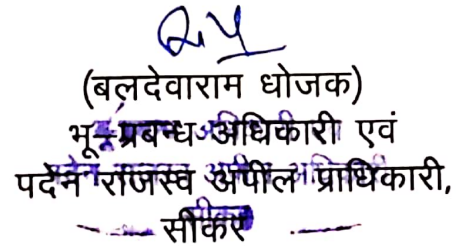 (बलदेवाराम धोजक)
भू-प्रबन्ध अधिकारी एवं
पदेन राजस्व अपील प्राधिकारी,
सीकर